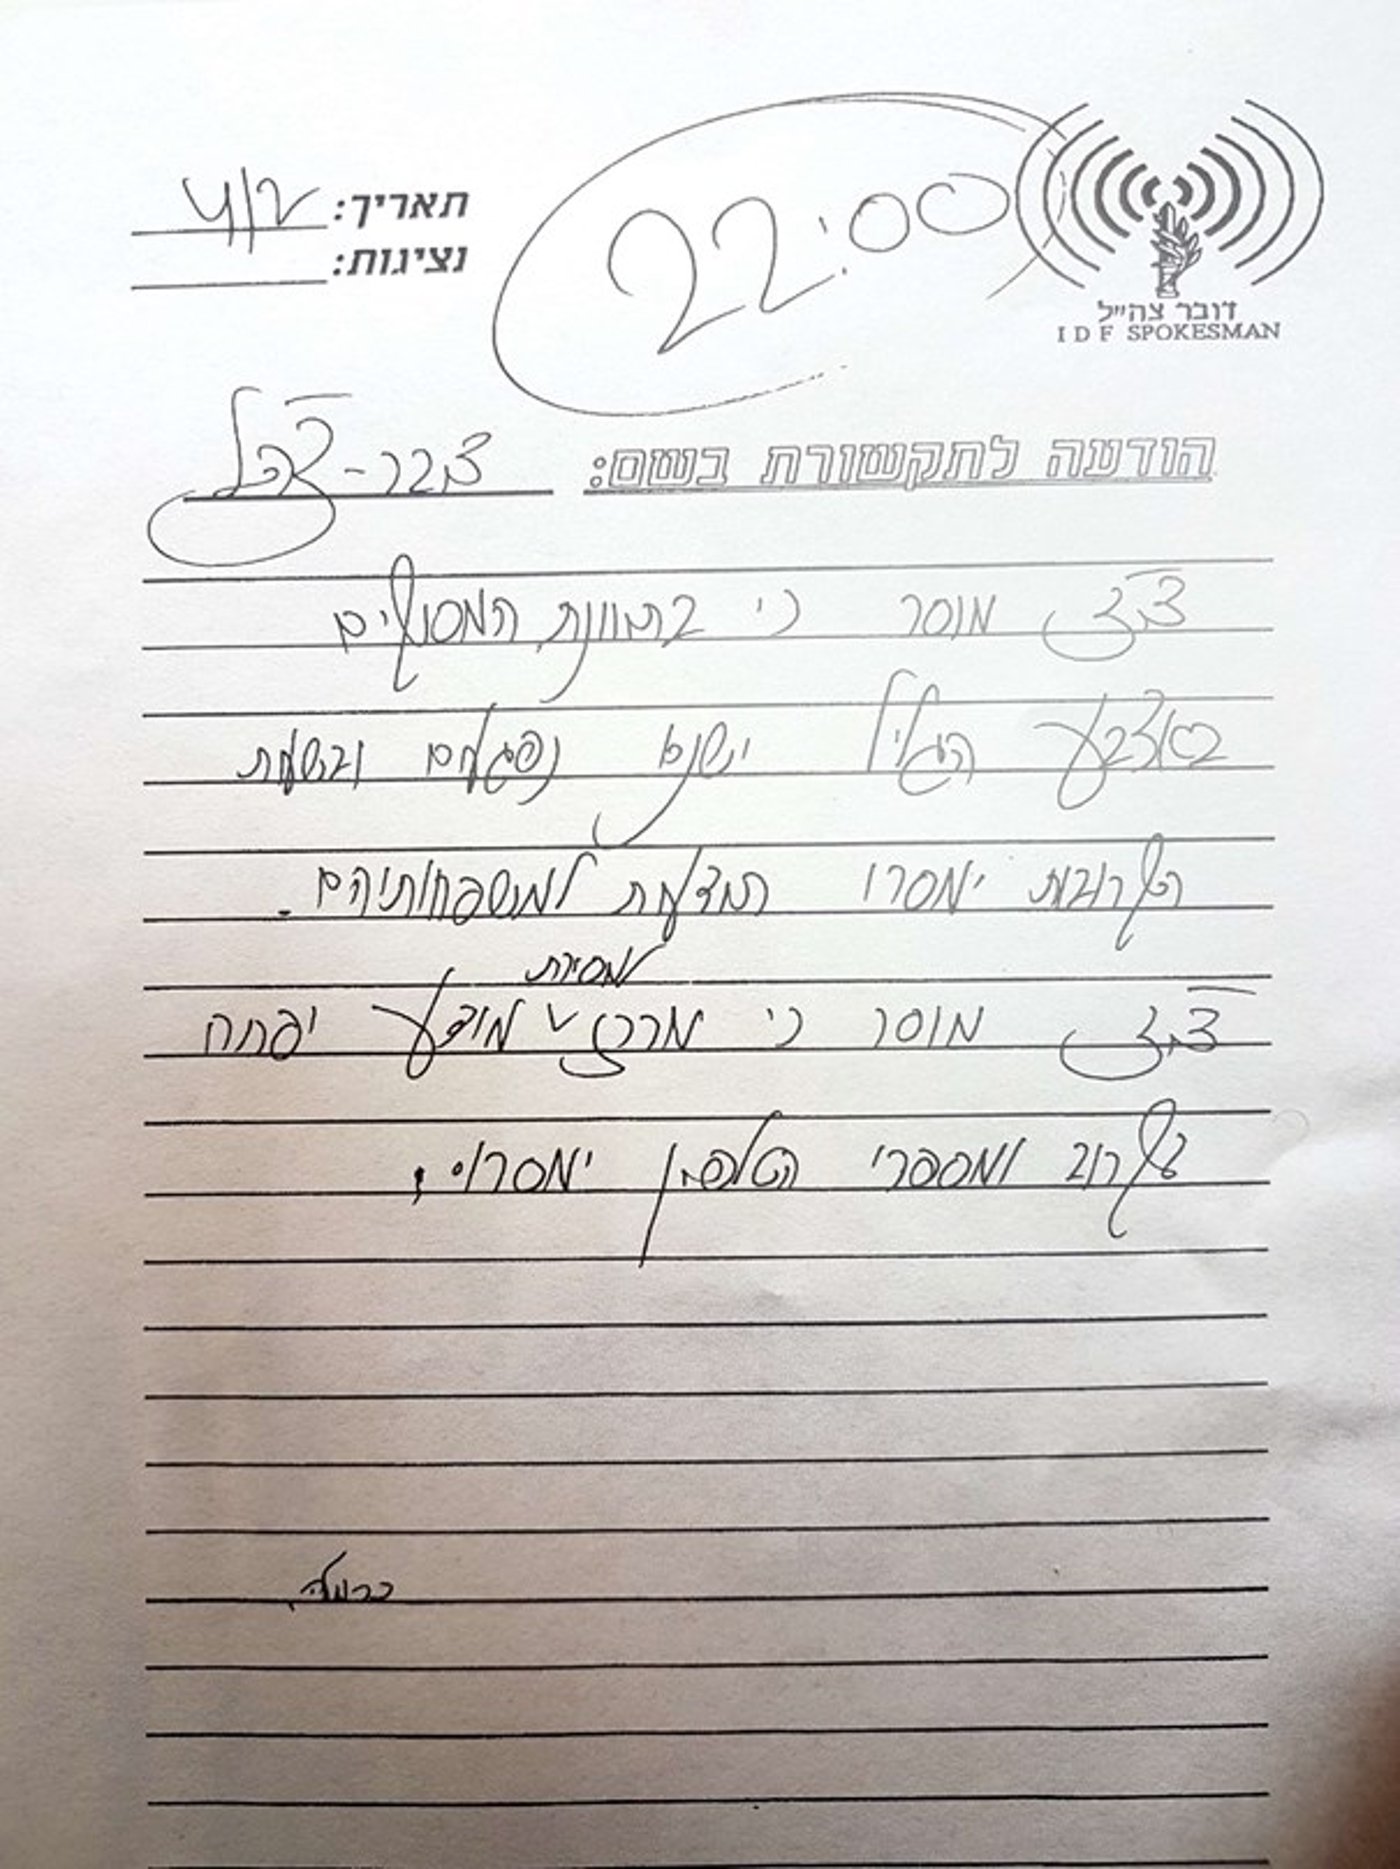 תאריך: 4/2
נציגות:
22:00
דובר צה"ל
IDF SPOKESMAN
הודעה לתקשורת בשם: דובר-צה"ל
דו"צ מוסר כי בתאונת המסוקים
באצבע הגליל ישנם נפגעים ובשעות
הקרובות ימסרו הודעות למשפחותיהם.
דו"צ מוסר כי מרכז למסירת מידע יפתח
בקרוב ומספרי הטלפון ימסרו.